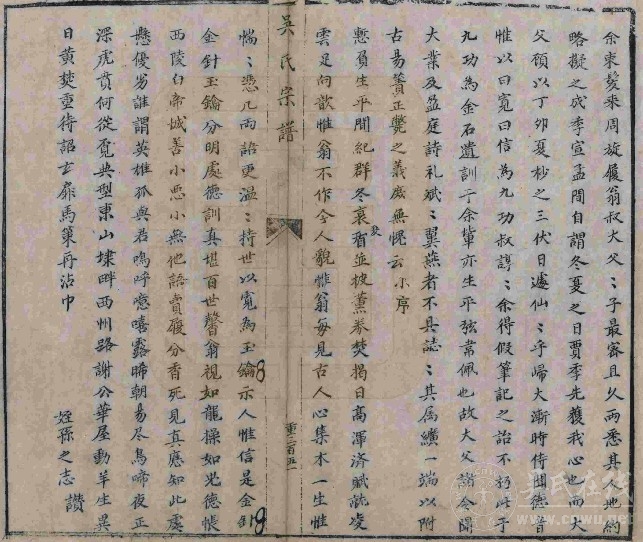 余束髮來周旋履翁叔大父〻子最審且久而悉其人地約
略擬之成季宣孟間自謂冬夏之日賈季先獲我心也而大
父頎以丁卯夏杪之三伏日遽仙〻乎歸大漸時侍聞德音
惟以曰寬曰信為九功叔諄〻余得假筆記之詒不朽此于
九功為金石遺訓于余輩亦生平弦韋佩也故大父諸令聞
大業及盆庭詩禮斌〻翼燕者不具誌〻其屬纊一端以附
古易簀正斃之義庶無愧云小序
懸負生平間紀群冬衰夏盾並披薰拳焚揭日高渾濟賦就凌
雲足向歆惟翁不作今人貌惟翁每見古人心集木一生惟
惴〻憑几兩語更溫〻持世以寬為玉鑰示人惟信是金針
吳氏宗譜
金針玉鑰分明處德訓真堪百世馨翁視如龍操如光德帳
西陵白帝城善小惡小無他語賣履分香死見真應知此處
懸優劣誰謂英雄孤與君嗚呼噫嘻露晞朝易尽鳥啼夜正
深虎賁何從覓典型東山埭畔西州路謝公華屋動羊生異
日黃焚重待詔玄扉馬策再沾巾
姪孫之志 讚
吳氏在線
www.cnwu.net